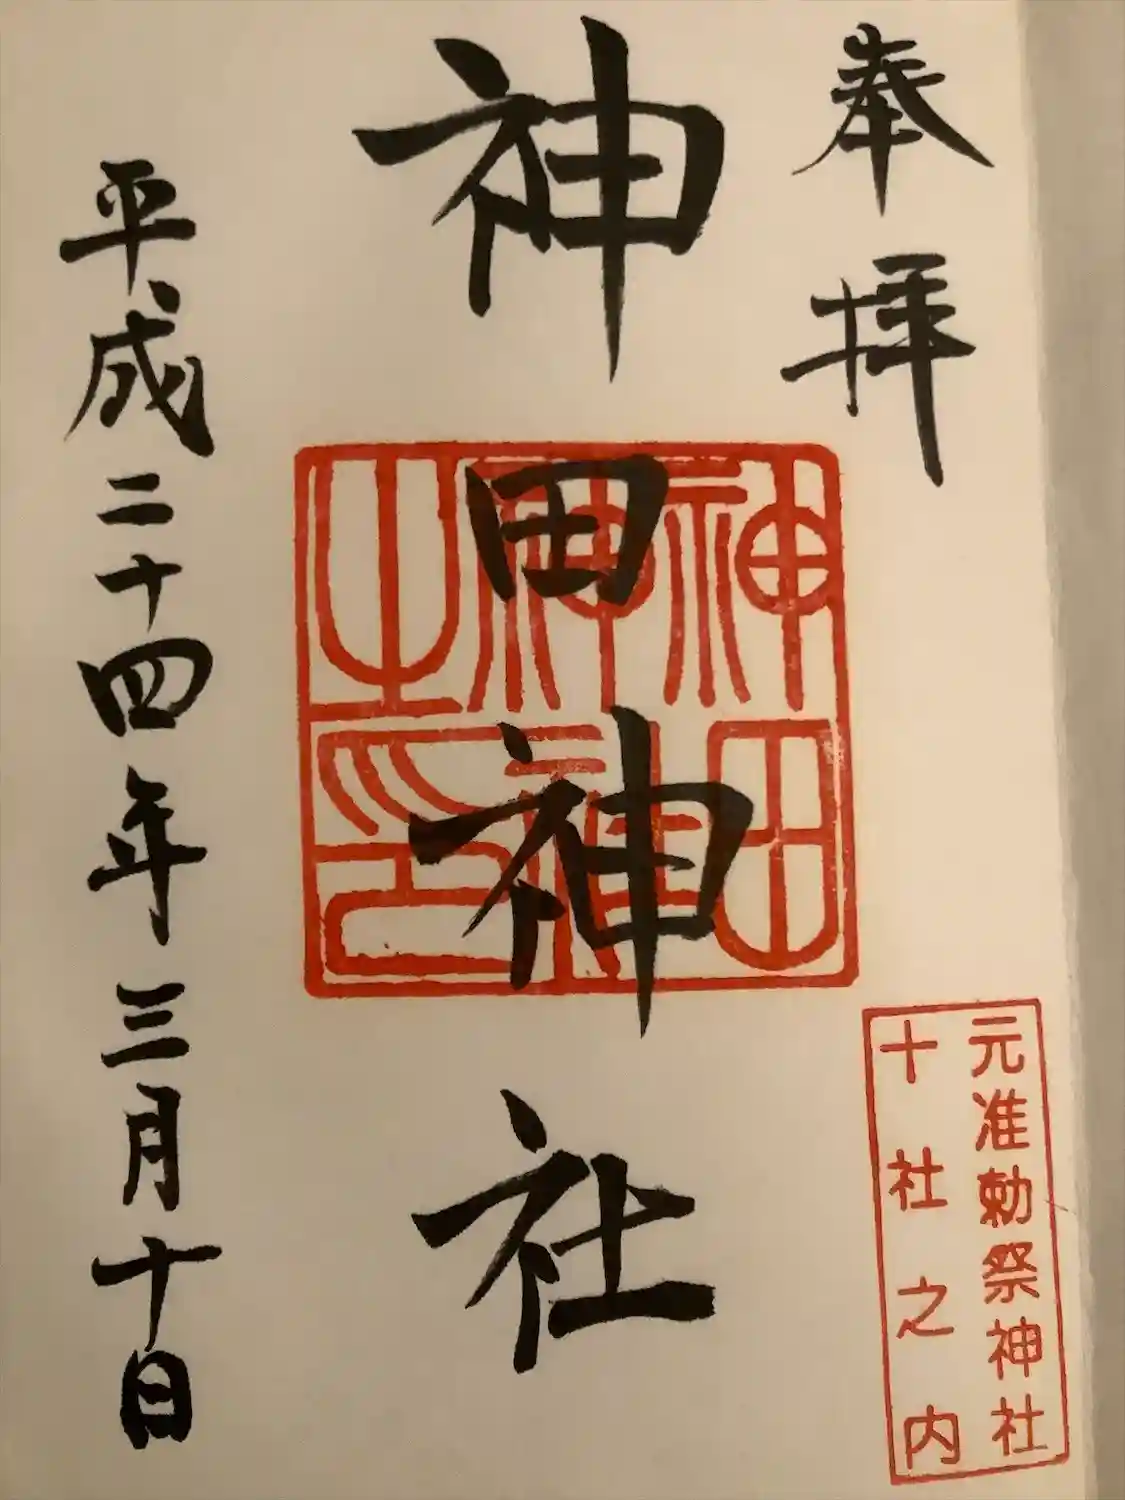 奉拝
神田神社
平成二十四年三月十日
神田神社之印
元准勅祭神社
十社之内